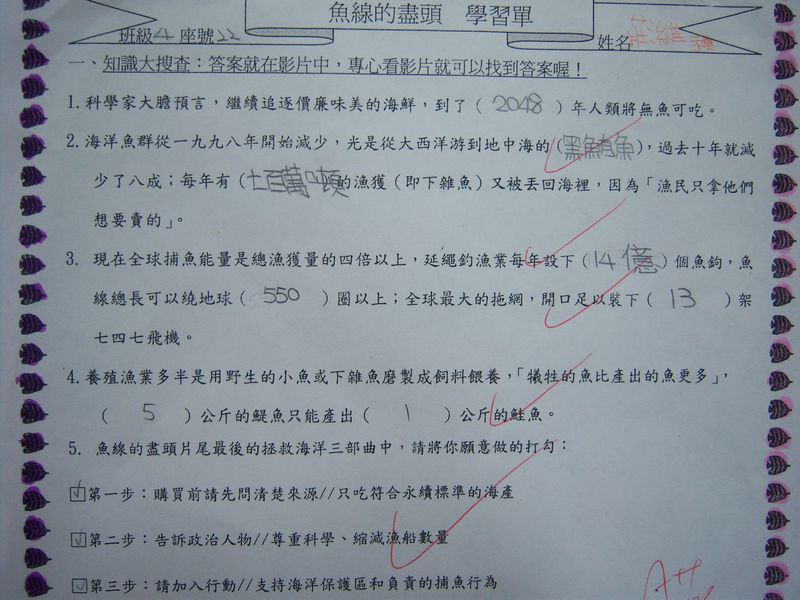 魚線的盡頭 學習單
班級4座號22 姓名
一、知識大搜查：答案就在影片中，專心看影片就可以找到答案喔！
1.科學家大膽預言，繼續追逐價廉味美的海鮮，到了（2048）年人類將無魚可吃。
2.海洋魚群從一九九八年開始減少，光是從大西洋游到地中海的（黑鮪魚），過去十年就減
少了八成；每年有（七百萬噸）的漁獲（即下雜魚）又被丟回海裡，因為「漁民只拿他們
想要賣的」。
3. 現在全球捕魚能量是總漁獲量的四倍以上，延繩釣漁業每年設下（14億）個魚鉤，魚
線總長可以繞地球（550）圈以上；全球最大的拖網，開口足以裝下（13）架
七四七飛機。
4.養殖漁業多半是用野生的小魚或下雜魚磨製成飼料餵養，「犧牲的魚比產出的魚更多」，
（5）公斤的鯷魚只能產出（1）公斤的鮭魚。
5. 魚線的盡頭片尾最後的拯救海洋三部曲中，請將你願意做的打勾：
☑第一步：購買前請先問清楚來源//只吃符合永續標準的海產
☑第二步：告訴政治人物//尊重科學、縮減漁船數量
☑第三步：請加入行動//支持海洋保護區和負責的捕魚行為
A++